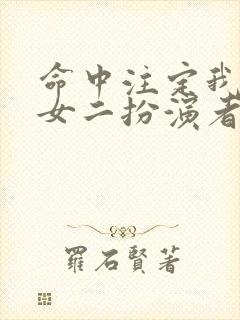 命中注定我
女二扮演者
羅石賢著